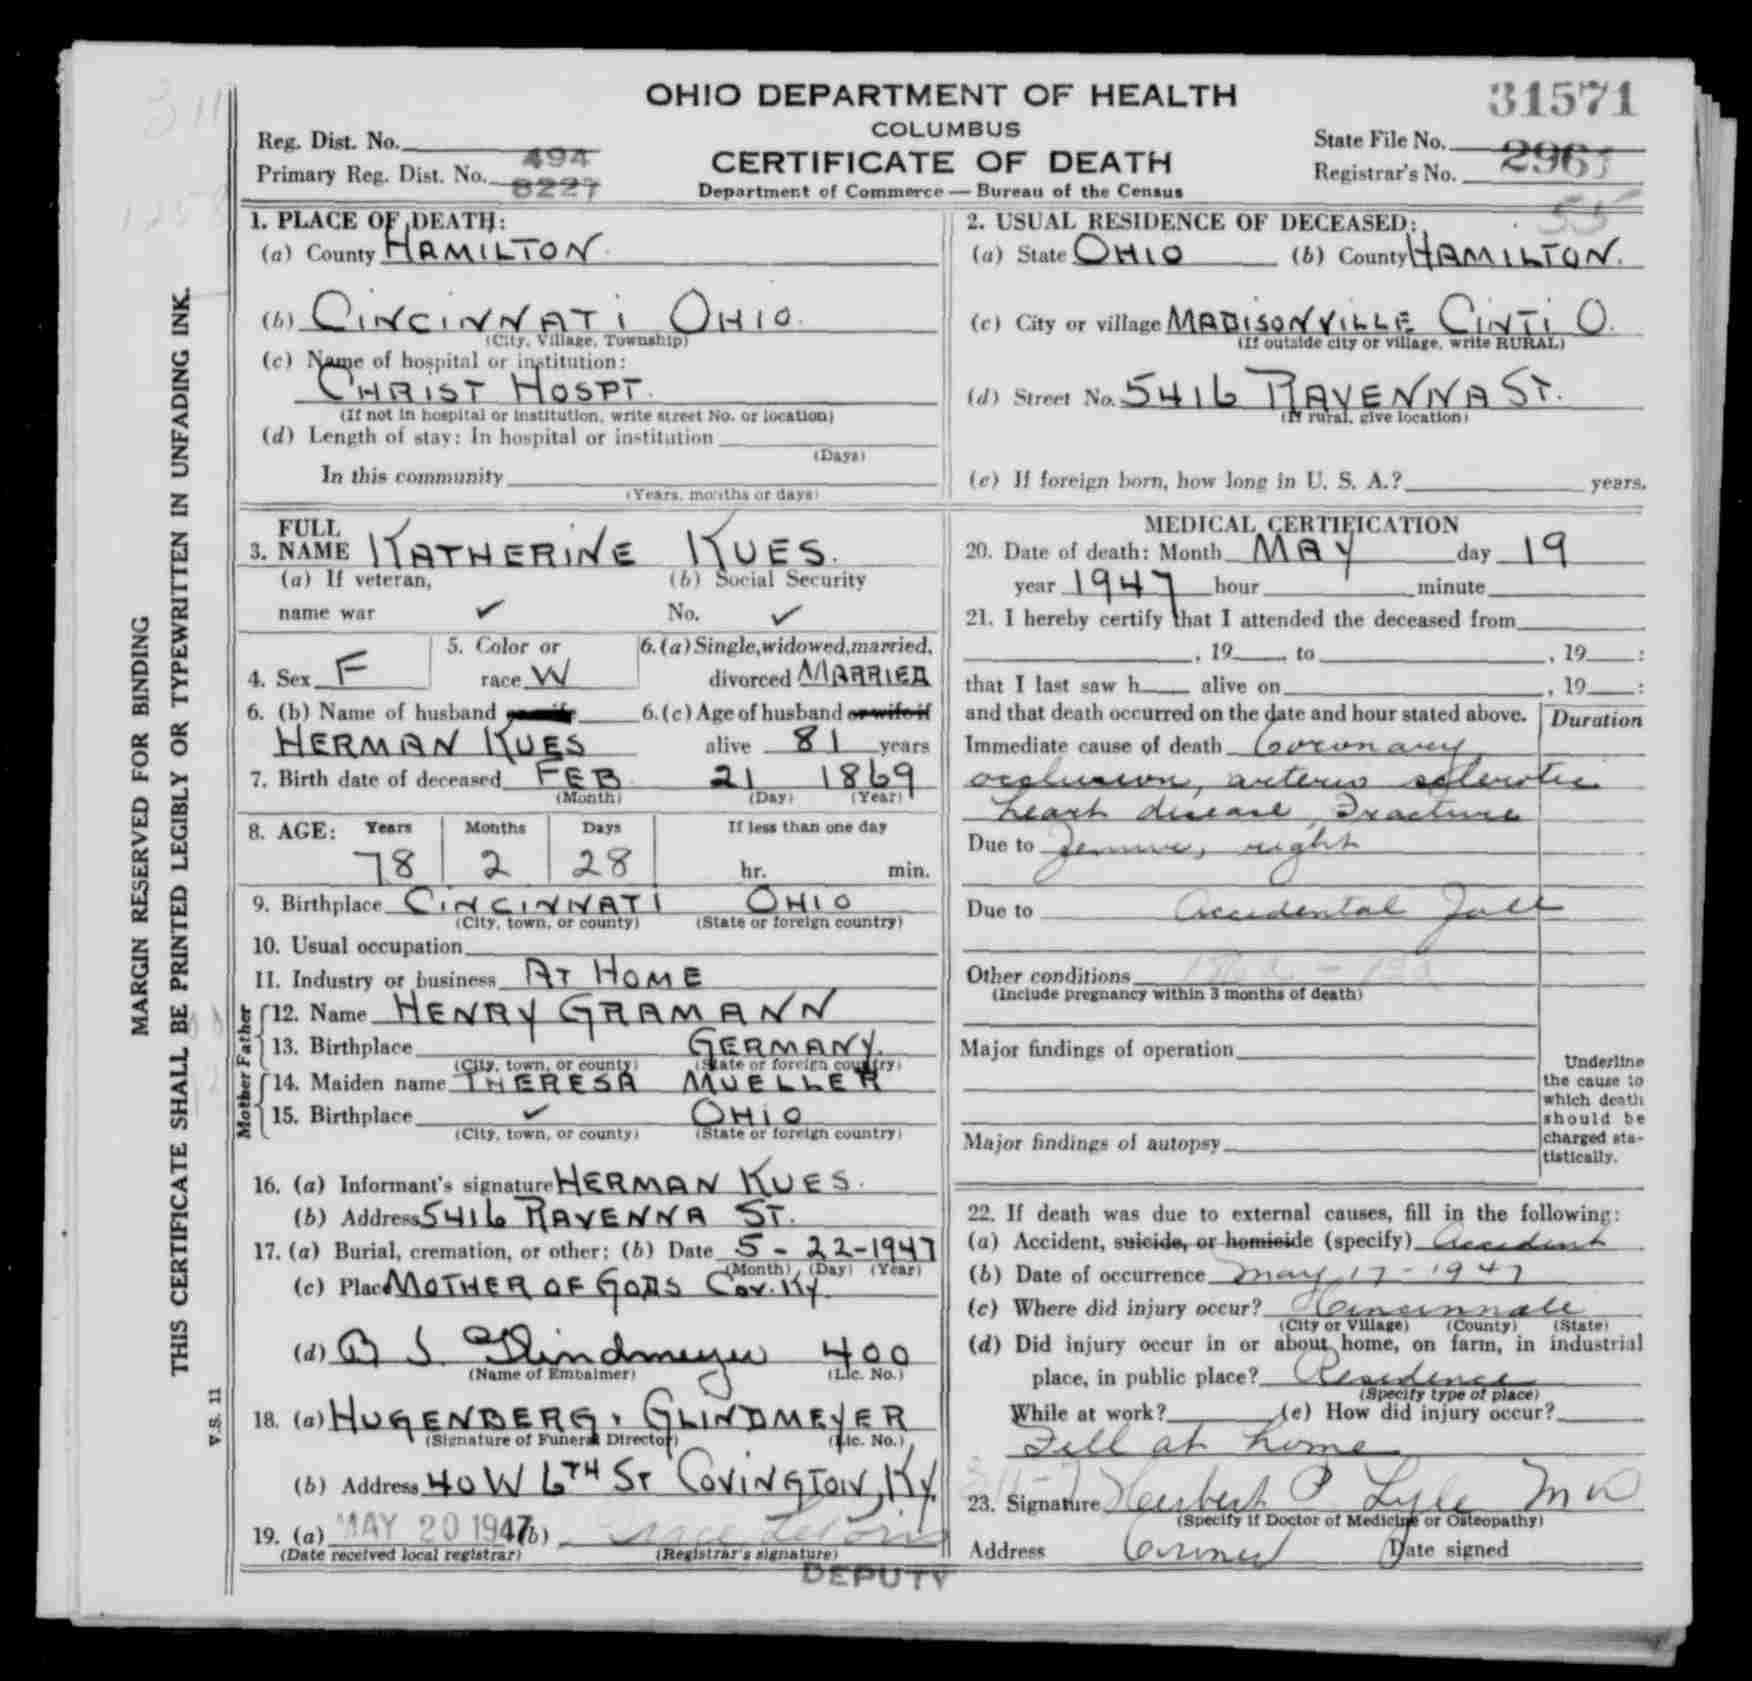 OHIO DEPARTMENT OF HEALTH
31571
COLUMBUS
CERTIFICATE OF DEATH
Department of Commerce — Bureau of the Census
Reg. Dist. No. 494
Primary Reg. Dist. No. 8227
State File No.
Registrar's No. 2961
55
1. PLACE OF DEATH:
(a) County HAMILTON
(b) CINCINNATI OHIO.
(City, Village, Township)
(c) Name of hospital or institution:
CHRIST HOSPT.
(If not in hospital or institution, write street No. or location)
(d) Length of stay: In hospital or institution
(Days)
In this community
(Years, months or days)
2. USUAL RESIDENCE OF DECEASED:
(a) State OHIO (b) County HAMILTON.
(c) City or village MADISONVILLE CINTI O.
(If outside city or village, write RURAL)
(d) Street No. 5416 RAVENNA ST.
(If rural, give location)
(e) If foreign born, how long in U. S. A.? years.
3. FULL NAME KATHERINE KUES.
(a) If veteran, (b) Social Security
name war ✓ No. ✓
4. Sex F 5. Color or race W 6. (a) Single, widowed, married, divorced MARRIED
6. (b) Name of husband or wife 6. (c) Age of husband or wife if
HERMAN KUES alive 81 years
7. Birth date of deceased FEB 21 1869
(Month) (Day) (Year)
8. AGE: Years Months Days If less than one day
78 2 28 hr. min.
9. Birthplace CINCINNATI OHIO
(City, town, or county) (State or foreign country)
10. Usual occupation
11. Industry or business AT HOME
Father
12. Name HENRY GRAMANN
13. Birthplace GERMANY.
(City, town, or county) (State or foreign country)
Mother
14. Maiden name THERESA MUELLER
15. Birthplace ✓ OHIO
(City, town, or county) (State or foreign country)
16. (a) Informant's signature HERMAN KUES.
(b) Address 5416 RAVENNA ST.
17. (a) Burial, cremation, or other: (b) Date 5-22-1947
(Month) (Day) (Year)
(c) Place MOTHER OF GODS COV. KY.
(d) Glindmeyer 400
(Name of Embalmer) (Lic. No.)
18. (a) HUGENBERG, GLINDMEYER
(Signature of Funeral Director) (Lic. No.)
(b) Address 40 W 6TH ST COVINGTON, KY.
19. (a) MAY 20 1947 (b)
(Date received local registrar) (Registrar's signature)
DEPUTY
MEDICAL CERTIFICATION
20. Date of death: Month MAY day 19
year 1947 hour minute
21. I hereby certify that I attended the deceased from
, 19 , to , 19 :
that I last saw h alive on , 19 :
and that death occurred on the date and hour stated above. Duration
Immediate cause of death Coronary
occlusion, arterio sclerotic
heart disease, Fracture
Due to femur, right
Due to Accidental fall
Other conditions
(Include pregnancy within 3 months of death)
Major findings of operation
Major findings of autopsy
Underline
the cause to
which death
should be
charged sta-
tistically.
22. If death was due to external causes, fill in the following:
(a) Accident, suicide, or homicide (specify) Accident
(b) Date of occurrence May 17-1947
(c) Where did injury occur? Cincinnati
(City or Village) (County) (State)
(d) Did injury occur in or about home, on farm, in industrial
place, in public place? Residence
(Specify type of place)
While at work? (e) How did injury occur?
Fell at home
23. Signature Herbert P. Lyle MD
(Specify if Doctor of Medicine or Osteopathy)
Address Coroner Date signed
MARGIN RESERVED FOR BINDING
THIS CERTIFICATE SHALL BE PRINTED LEGIBLY OR TYPEWRITTEN IN UNFADING INK.
V.S. 11